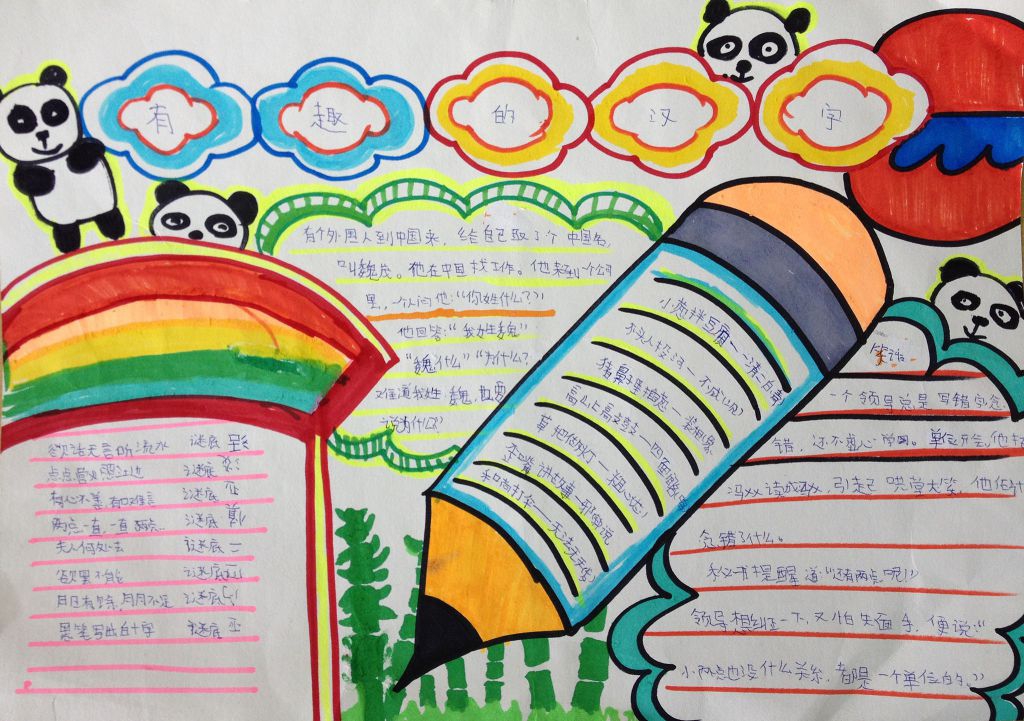 有趣的汉字
有个外国人到中国来，给自己取了个中国名，
叫魏茂。他在中国找工作。他来到一个公司
里，一个人问他："你姓什么？"
他回答："我姓魏"
"魏什么""为什么？
难道我姓魏，也要
说为什么？
小葱拌豆腐—清二白
木头人投河—不成
猪鼻子里插葱—装相
高山上高鼓—四面
莫把的灯—粗心
歪嘴讲故事—邪说
和尚打伞—无法无天
欲话无言听流水 谜底
点点营火照江边 谜底
有心不善，有口难言 谜底
两点一直，一直两点 谜底
夫人何处去 谜底二
欲罢不能 谜底
月日有余，月月不足 谜底
黑笔写出白十字 谜底
笑话
一个领导总是写错字念
错，还不虚心学习。单位开会，他
冯xx读成马xx，引起哄堂大笑，他
念错了什么。
秘书提醒道"还有两点呢！"
领导想纠正一下，又怕失面子，便说："
小两点也没什么关系，都是一个单位的。"